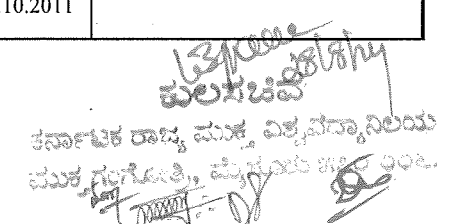 10.2011
28/8/14
ಕುಲಸಚಿವ
ಕರ್ನಾಟಕ ರಾಜ್ಯ ಮುಕ್ತ ವಿಶ್ವವಿದ್ಯಾನಿಲಯ
ಮುಕ್ತಗಂಗೋತ್ರಿ, ಮೈಸೂರು